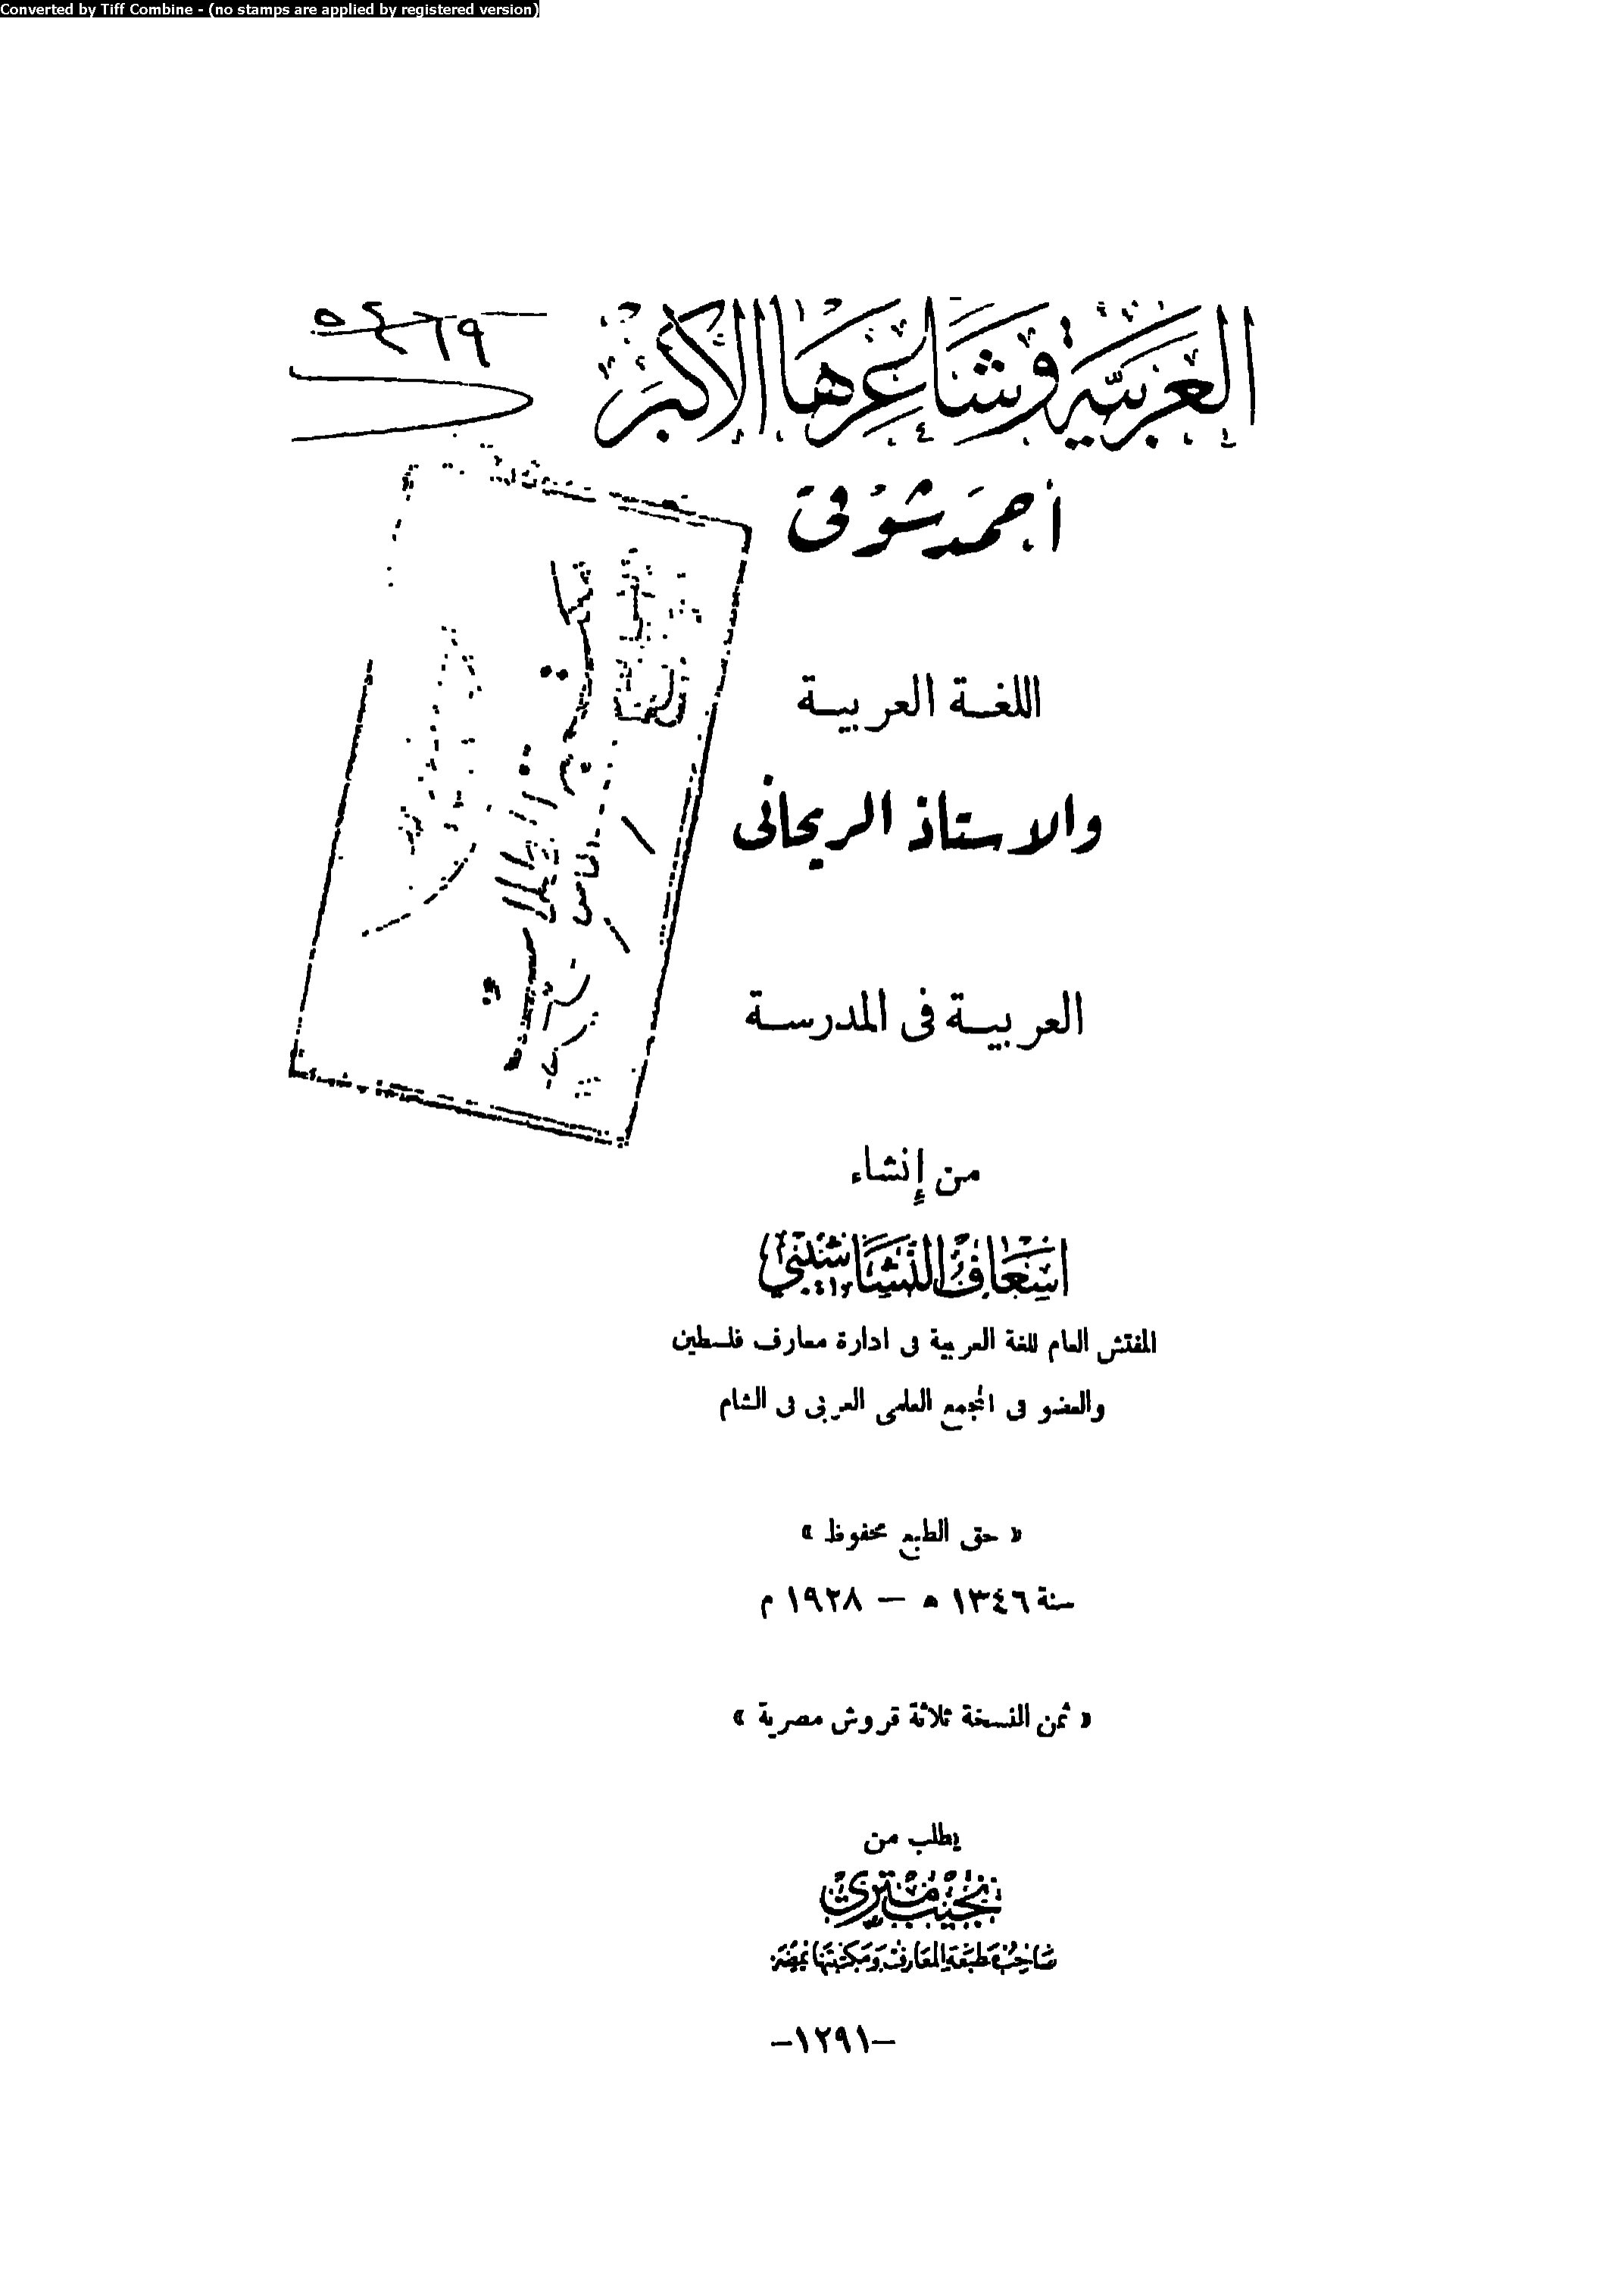 Converted by Tiff Combine - (no stamps are applied by registered version)
٥٤٦٩
العربية وشاعرها الأكبر
أحمد شوقى
اللغة العربية
والاستاذ الريحانى
العربية فى المدرسة
من إنشاء
اسعاف النشاشيبي
المفتش العام للغة العربية فى ادارة معارف فلسطين
والعضو فى المجمع العلمى العربى فى الشام
« حق الطبع محفوظ »
سنة ١٣٤٦ ه — ١٩٢٨ م
« ثمن النسخة ثلاثة قروش مصرية »
يطلب من
نجيب متري
صاحب مطبعة المعارف ومكتبتها بمصر
-١٢٩١-